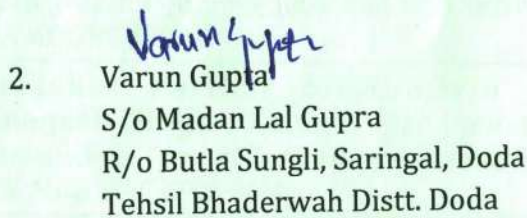 Varun Gupta
2. Varun Gupta
S/o Madan Lal Gupra
R/o Butla Sungli, Saringal, Doda
Tehsil Bhaderwah Distt. Doda